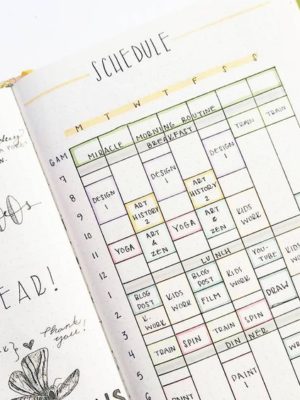 SCHEDULE
M T W T F S S
6AM MIRACLE MORNING ROUTINE
BREAKFAST TRAIN TRAIN
7
8 DESIGN 1 DESIGN 1
9 ART HISTORY 2 ART HISTORY 2
10 DESIGN 1 DESIGN 1 ART & ZEN KIDS WORK
11 YOGA ART & ZEN YOGA KIDS WORK
12 LUNCH
1 BLOG POST KIDS WORK BLOG POST KIDS WORK YOUTUBE KIDS WORK
2 K. WORK FILM DRAW
3
4 TRAIN SPIN TRAIN SPIN
5 DINNER
6
7 PAINT 1 PAINT 1
EAR!
Thank you!